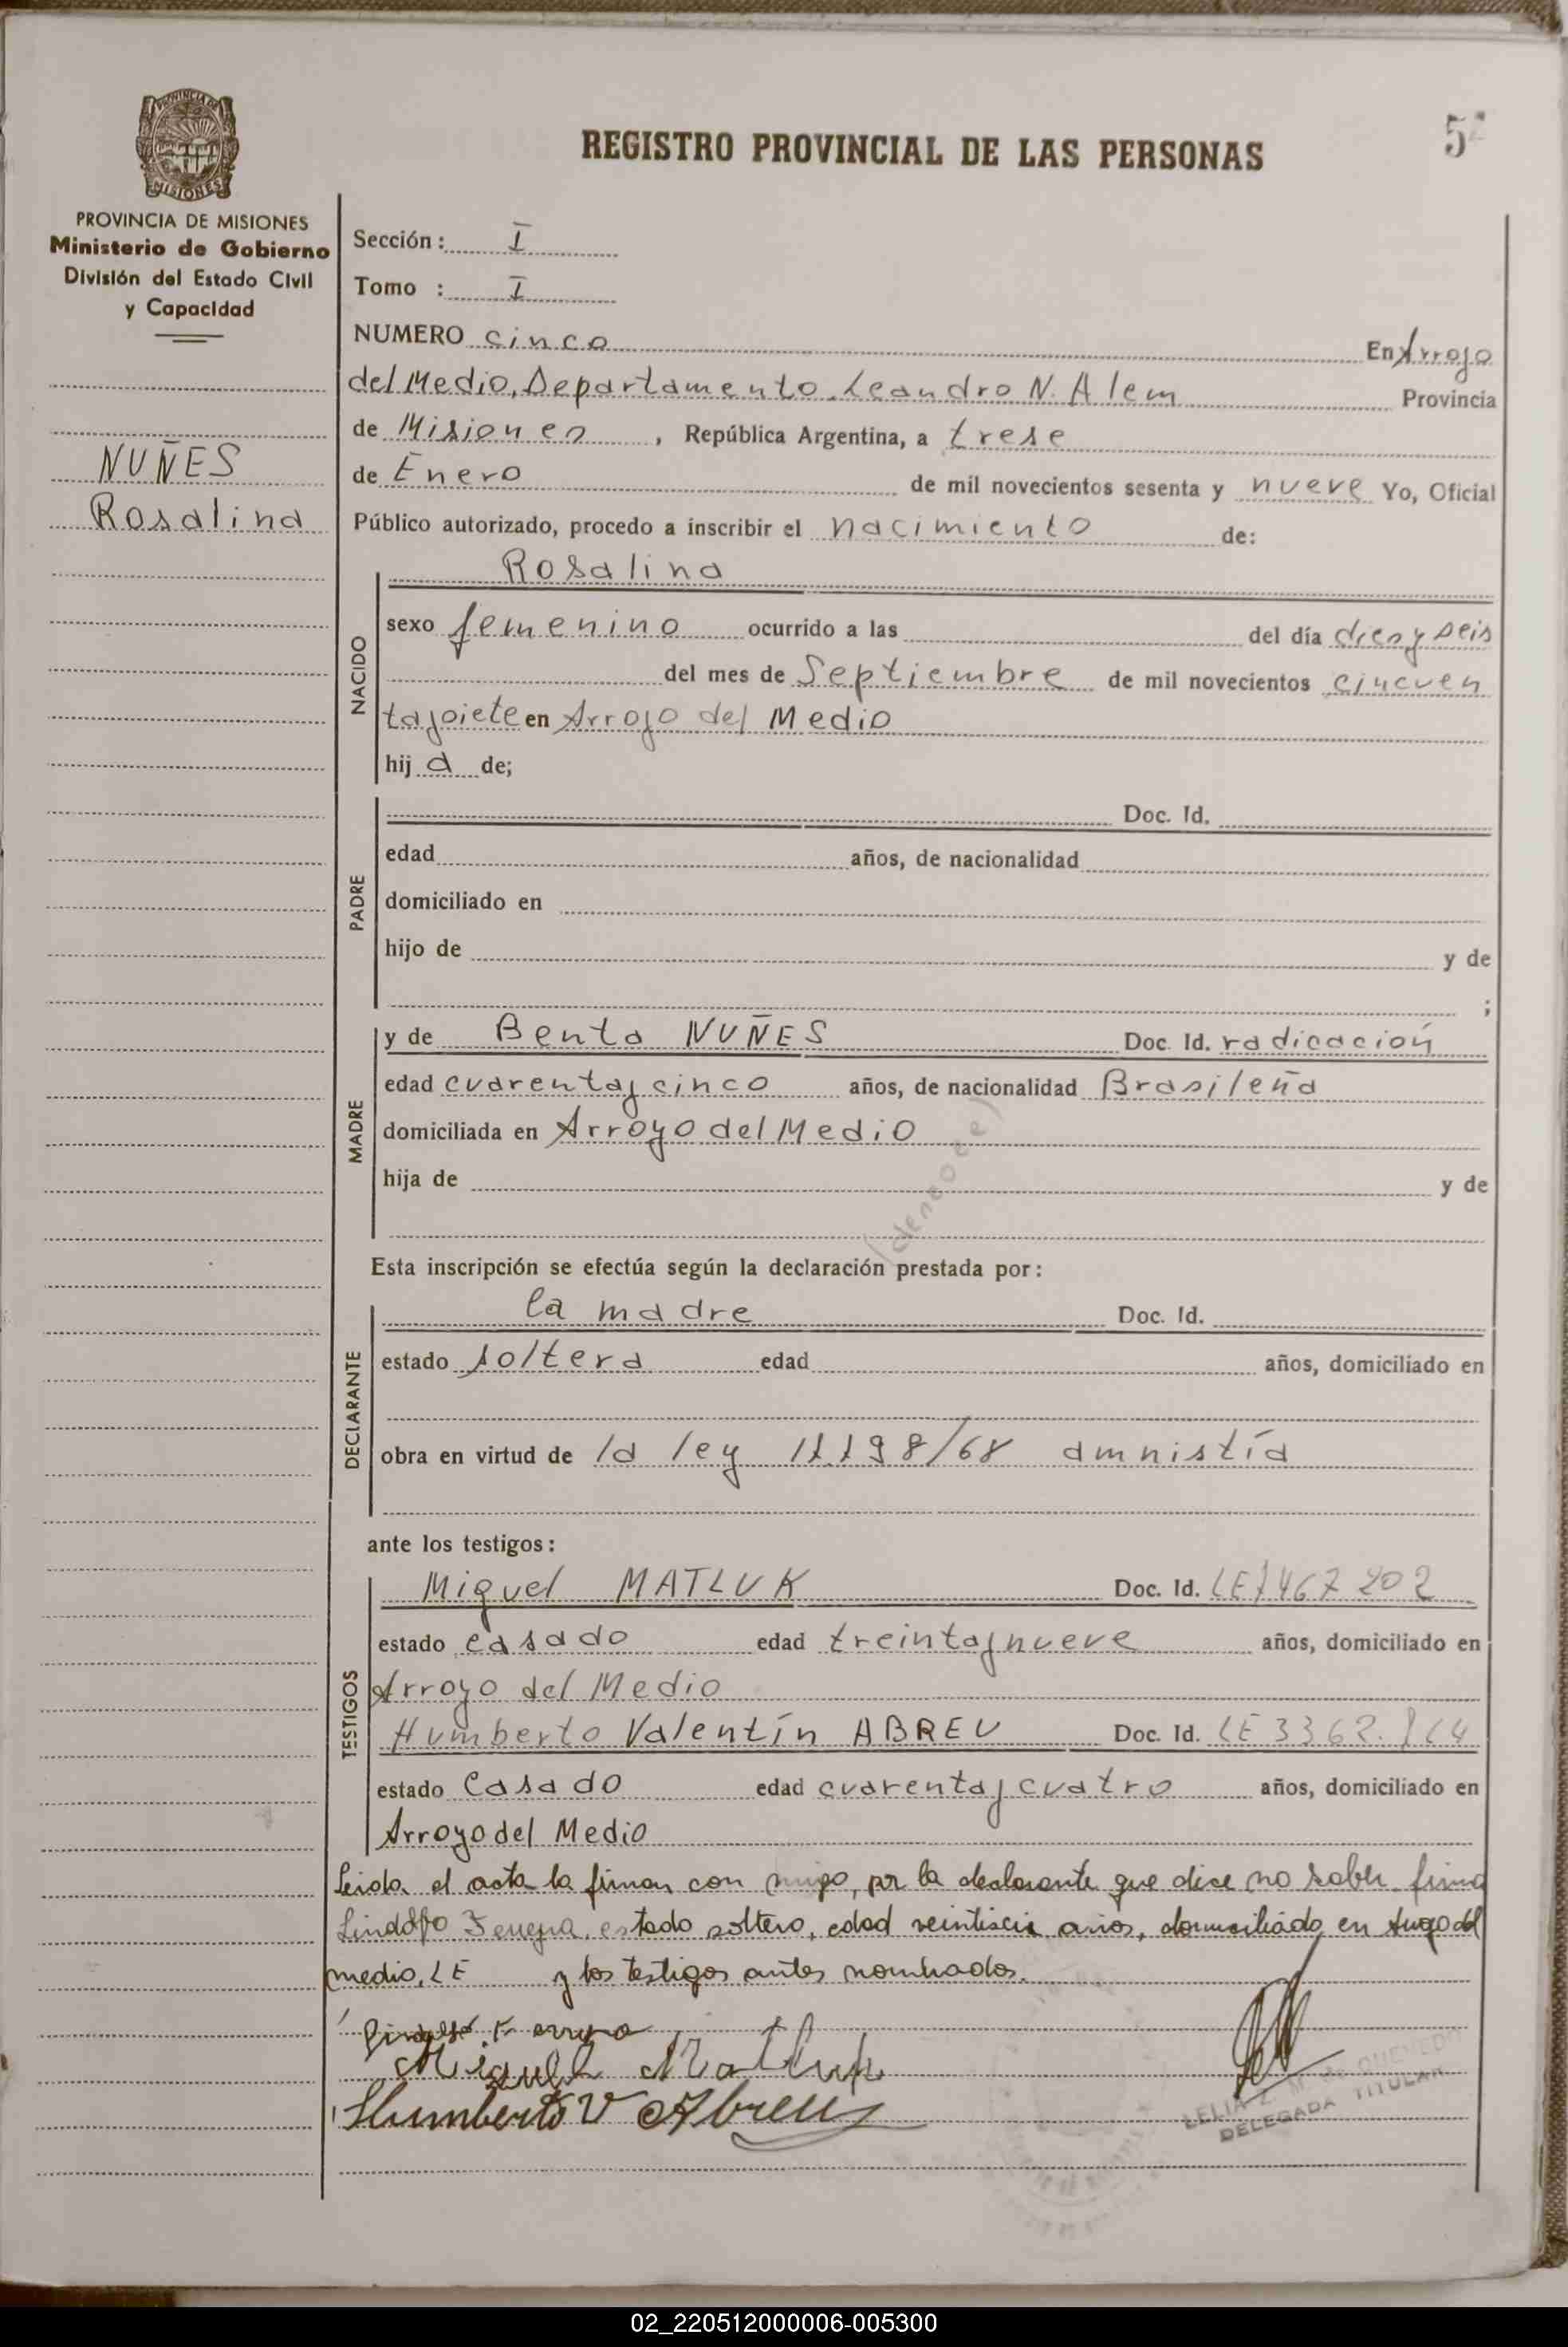 REGISTRO PROVINCIAL DE LAS PERSONAS
5
PROVINCIA DE MISIONES
Ministerio de Gobierno
División del Estado Civil
y Capacidad
NUÑES
Rosalina
Sección: I
Tomo : I
NUMERO cinco En Arroyo
del Medio, Departamento Leandro N. Alem Provincia
de Misiones, República Argentina, a trese
de Enero de mil novecientos sesenta y nueve Yo, Oficial
Público autorizado, procedo a inscribir el nacimiento de:
NACIDO
Rosalina
sexo femenino ocurrido a las del día dies y seis
del mes de Septiembre de mil novecientos cincuen
taysiete en Arroyo del Medio
hija de;
PADRE
Doc. Id.
edad años, de nacionalidad
domiciliado en
hijo de y de
;
MADRE
y de Benta NUÑES Doc. Id. radicación
edad cuarentaycinco años, de nacionalidad Brasileña
domiciliada en Arroyo del Medio
hija de y de
Esta inscripción se efectúa según la declaración prestada por:
DECLARANTE
la madre Doc. Id.
estado soltera edad años, domiciliado en
obra en virtud de la ley 17.198/68 amnistía
ante los testigos:
TESTIGOS
Miguel MATLUK Doc. Id. LE 7467 202
estado casado edad treintaynueve años, domiciliado en
Arroyo del Medio
Humberto Valentín ABREU Doc. Id. LE 3362.
estado Casado edad cuarentaycuatro años, domiciliado en
Arroyo del Medio
Leida el acta la firman con migo, por la declarante que dice no saber firma
Lindolfo Ferreyra, estado soltero, edad veintiseis años, domiciliado en Arroyo del
medio, LE y los testigos antes nombrados.
Miguel Matluk
Humberto V Abreu
LELIA Z. M. de QUEVEDO
DELEGADA TITULAR
02_220512000006-005300